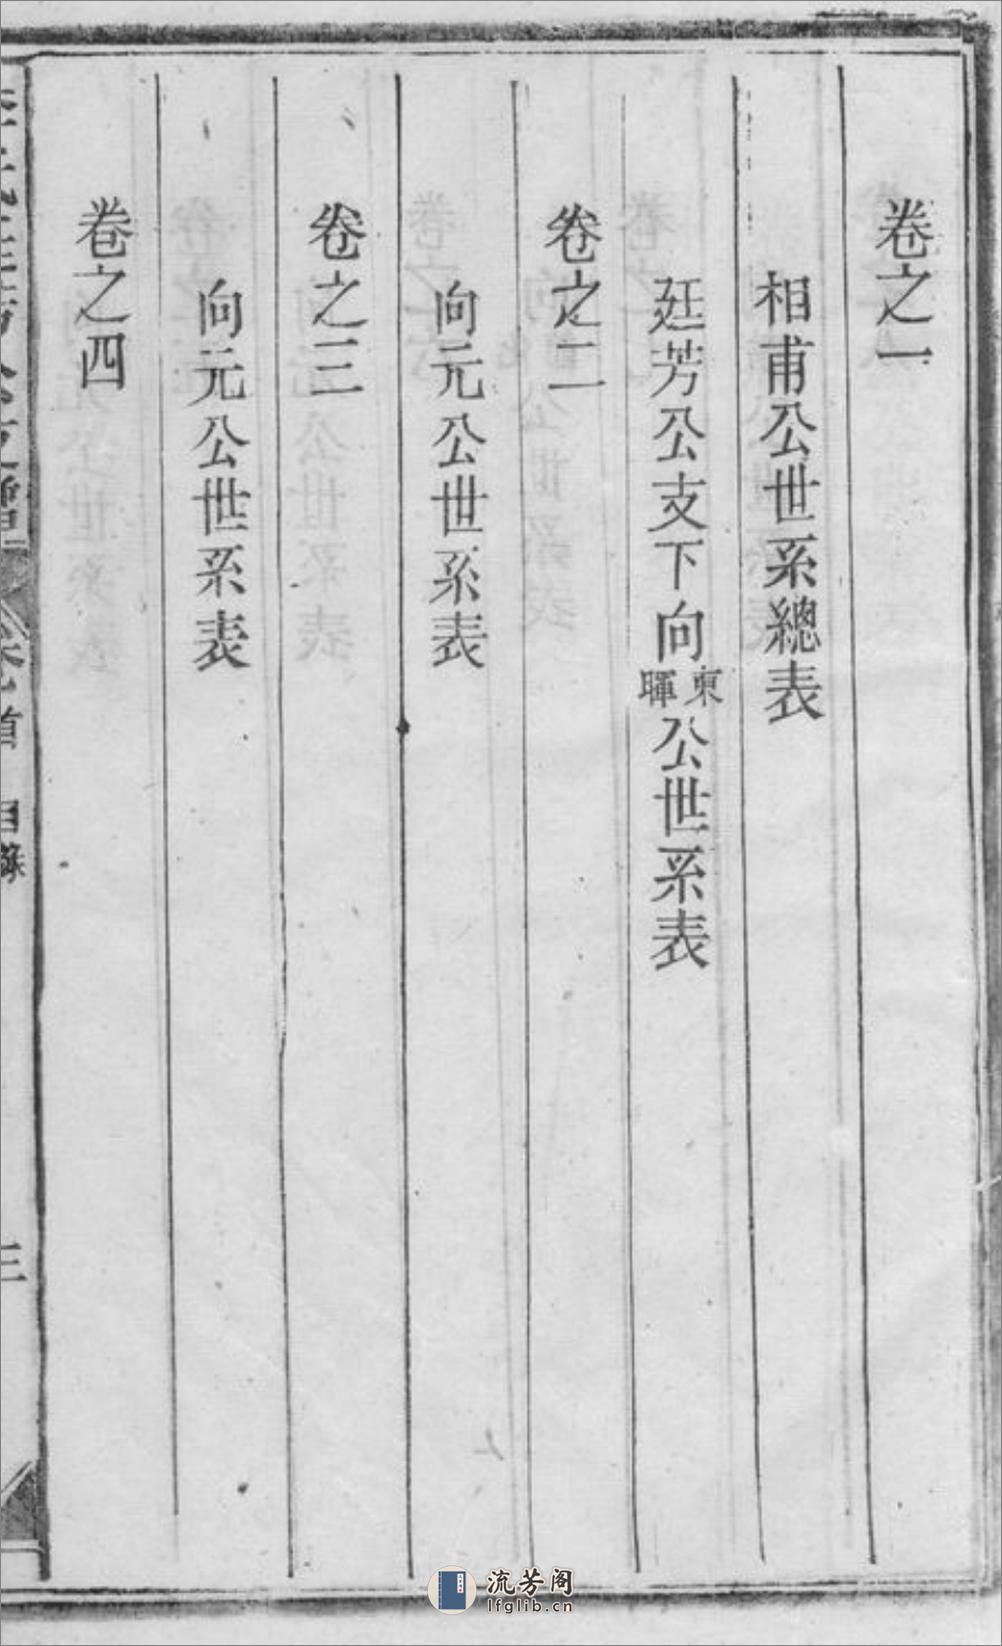 卷之一
相甫公世系總表
廷芳公支下向東暉公世系表
卷之二
向元公世系表
卷之三
向元公世系表
卷之四
首 目錄
三
流芳阁
lfglib.cn